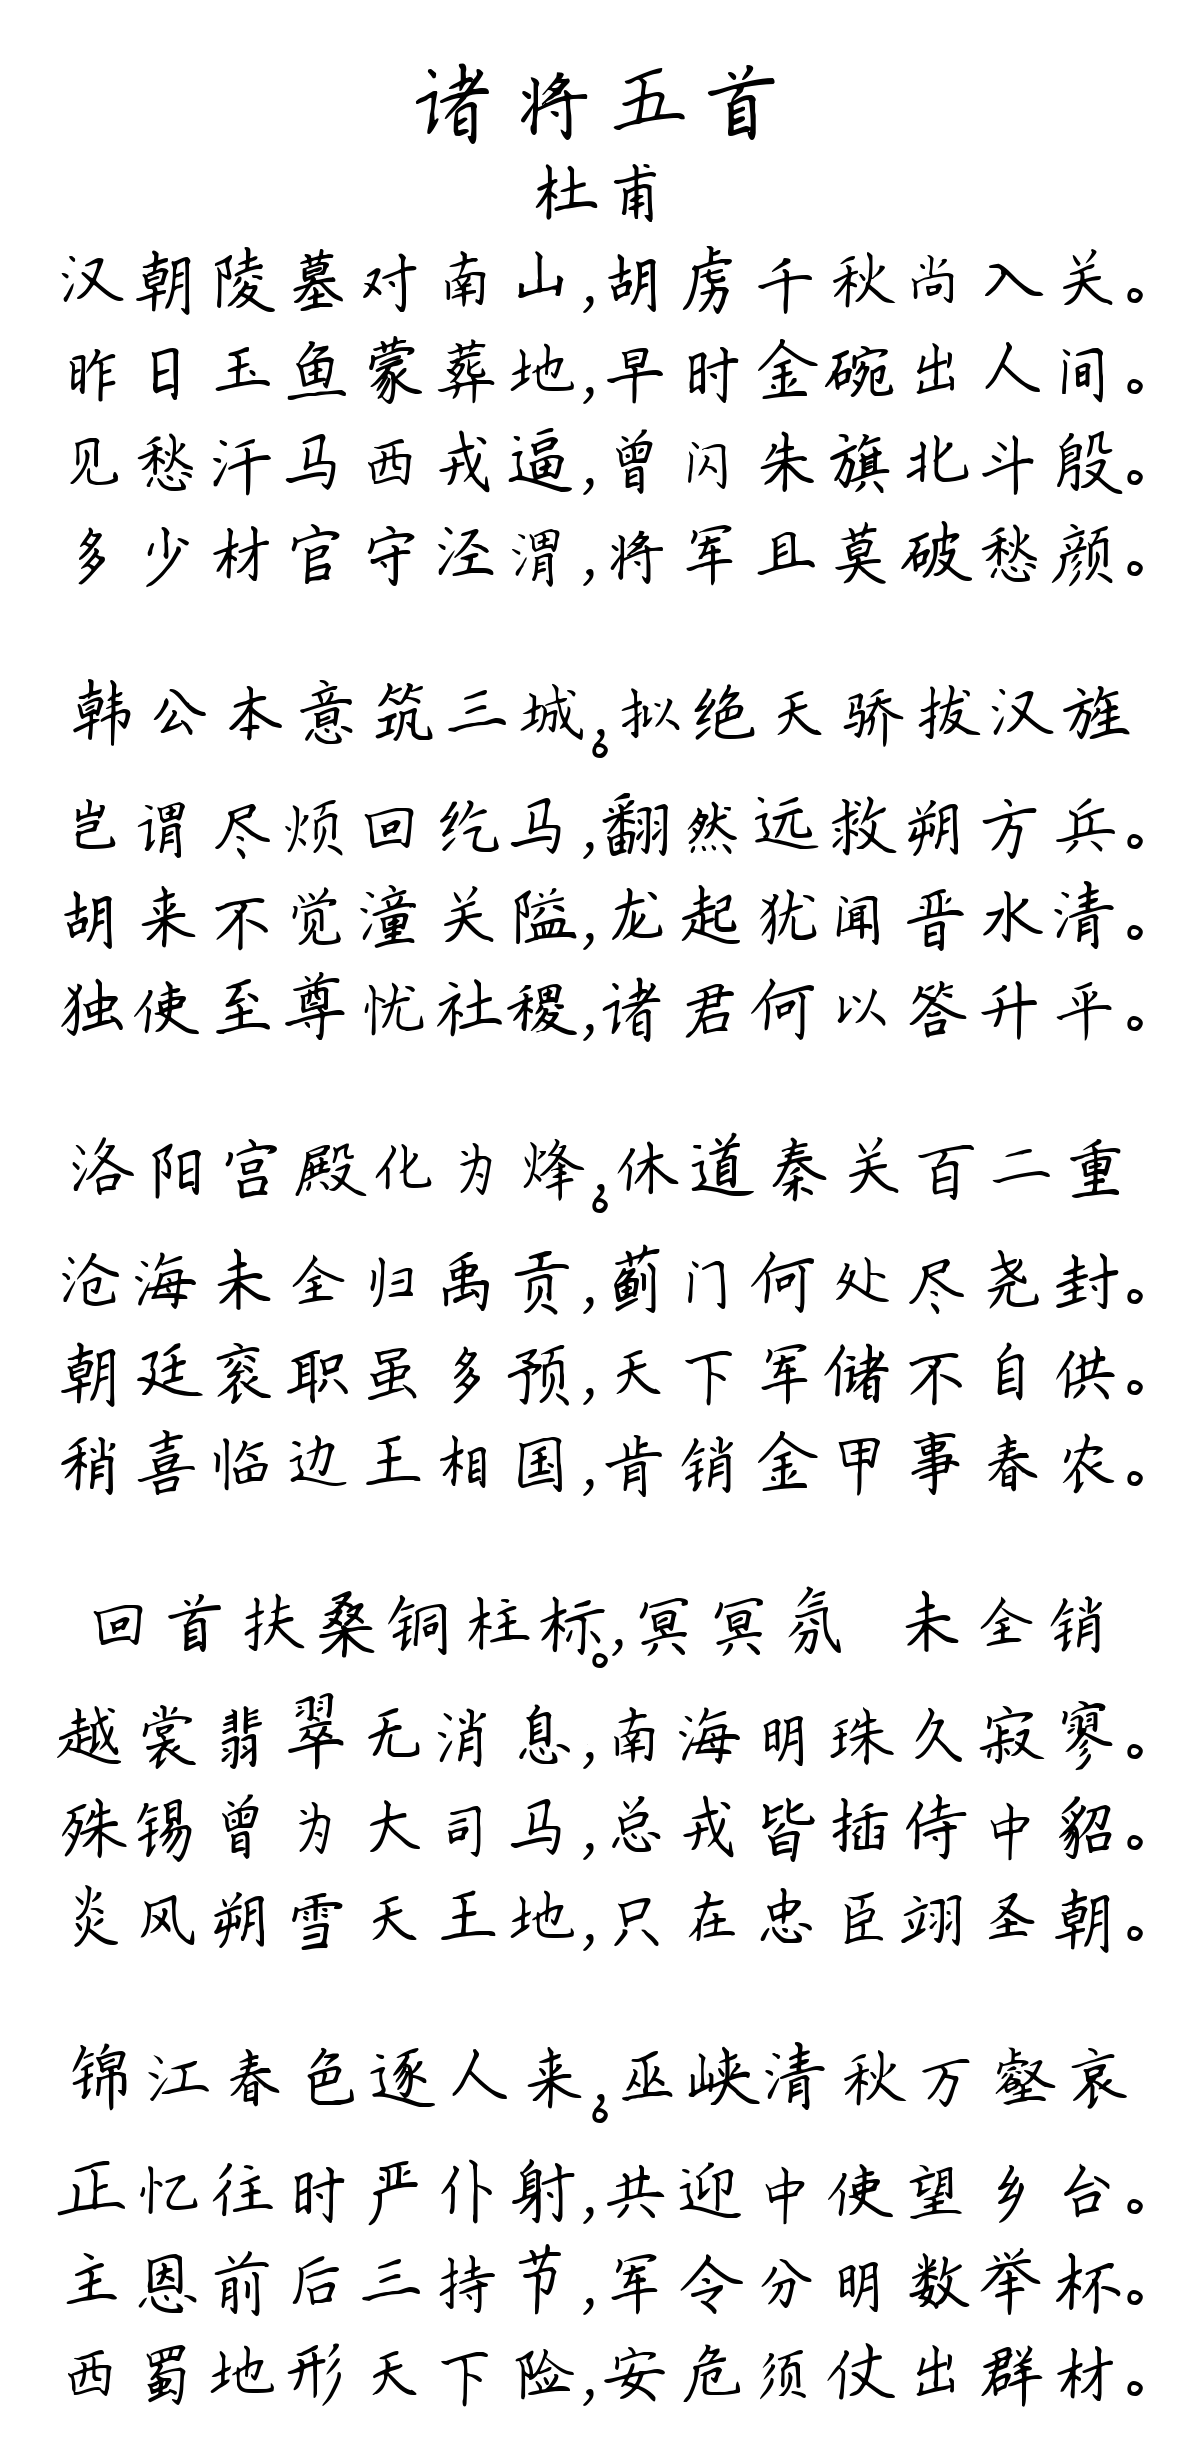 诸将五首
杜甫
汉朝陵墓对南山,胡虏千秋尚入关。
昨日玉鱼蒙葬地,早时金碗出人间。
见愁汗马西戎逼,曾闪朱旗北斗殷。
多少材官守泾渭,将军且莫破愁颜。
韩公本意筑三城,拟绝天骄拔汉旌。
岂谓尽烦回纥马,翻然远救朔方兵。
胡来不觉潼关隘,龙起犹闻晋水清。
独使至尊忧社稷,诸君何以答升平。
洛阳宫殿化为烽,休道秦关百二重。
沧海未全归禹贡,蓟门何处尽尧封。
朝廷衮职虽多预,天下军储不自供。
稍喜临边王相国,肯销金甲事春农。
回首扶桑铜柱标,冥冥氛 未全销。
越裳翡翠无消息,南海明珠久寂寥。
殊锡曾为大司马,总戎皆插侍中貂。
炎风朔雪天王地,只在忠臣翊圣朝。
锦江春色逐人来,巫峡清秋万壑哀。
正忆往时严仆射,共迎中使望乡台。
主恩前后三持节,军令分明数举杯。
西蜀地形天下险,安危须仗出群材。